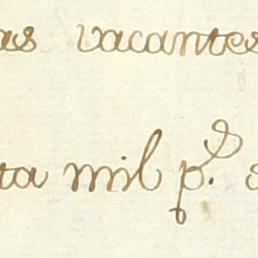 as vacantes
ta mil p.s